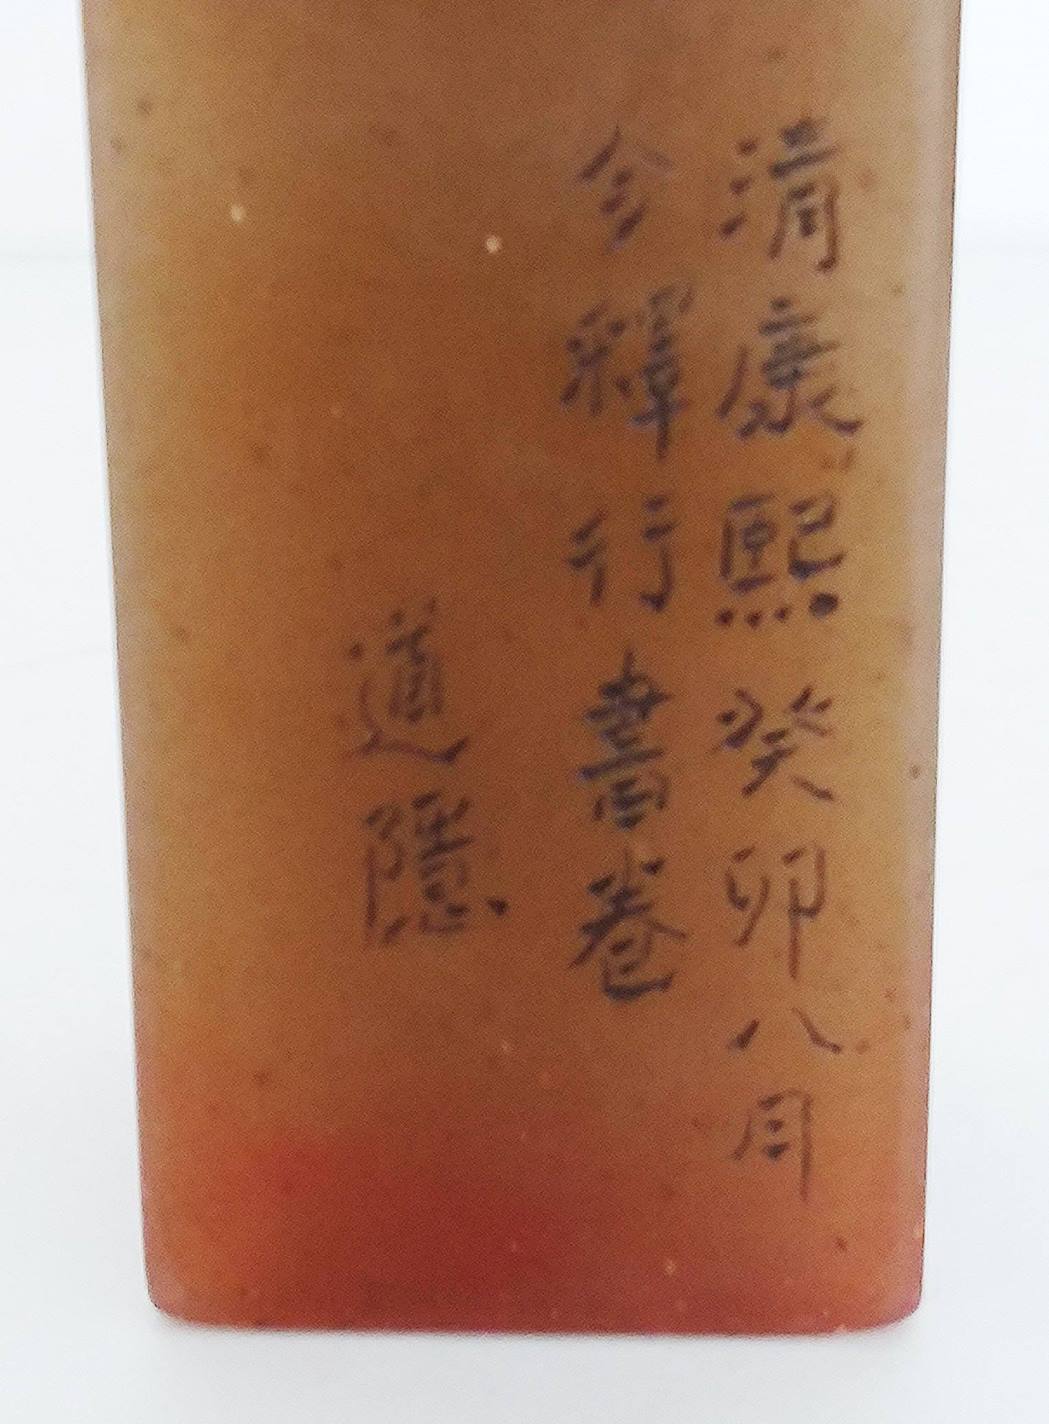 清康熙癸卯八月
今釋行書卷
道隱